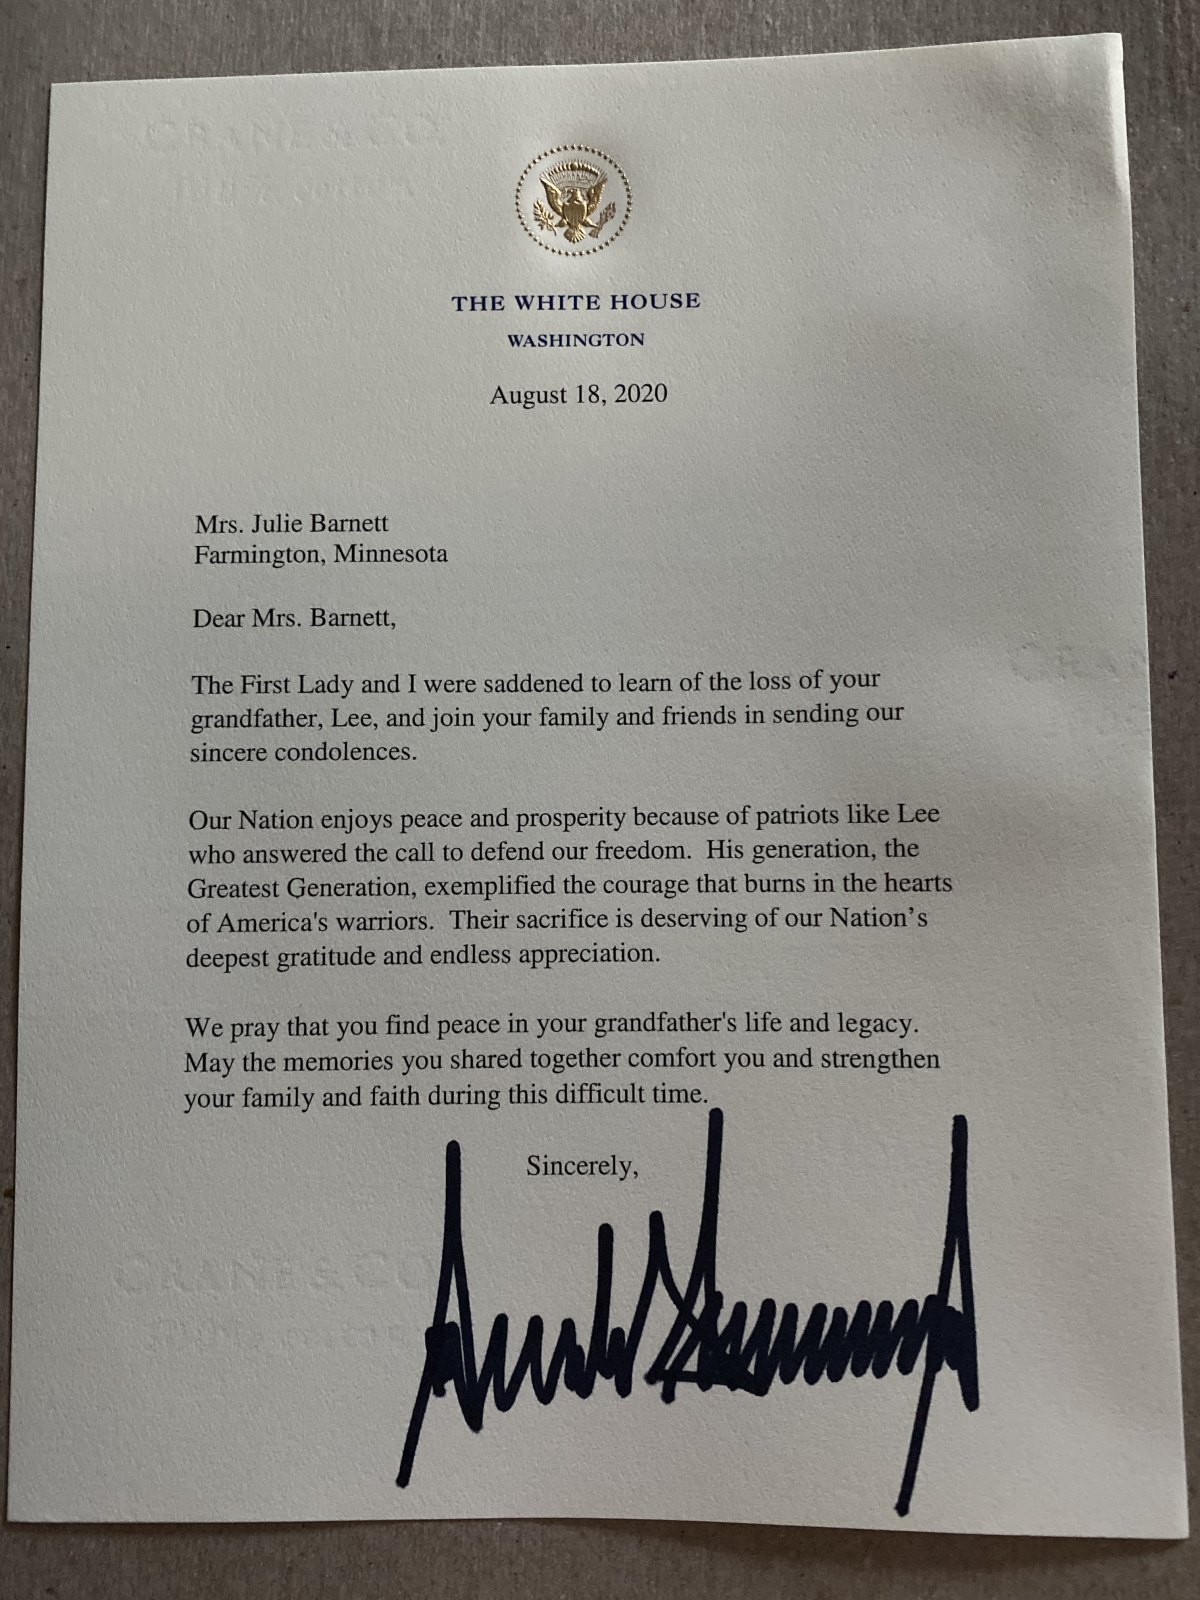 THE WHITE HOUSE
WASHINGTON
August 18, 2020
Mrs. Julie Barnett
Farmington, Minnesota
Dear Mrs. Barnett,
The First Lady and I were saddened to learn of the loss of your
grandfather, Lee, and join your family and friends in sending our
sincere condolences.
Our Nation enjoys peace and prosperity because of patriots like Lee
who answered the call to defend our freedom.  His generation, the
Greatest Generation, exemplified the courage that burns in the hearts
of America's warriors.  Their sacrifice is deserving of our Nation’s
deepest gratitude and endless appreciation.
We pray that you find peace in your grandfather's life and legacy.
May the memories you shared together comfort you and strengthen
your family and faith during this difficult time.
Sincerely,